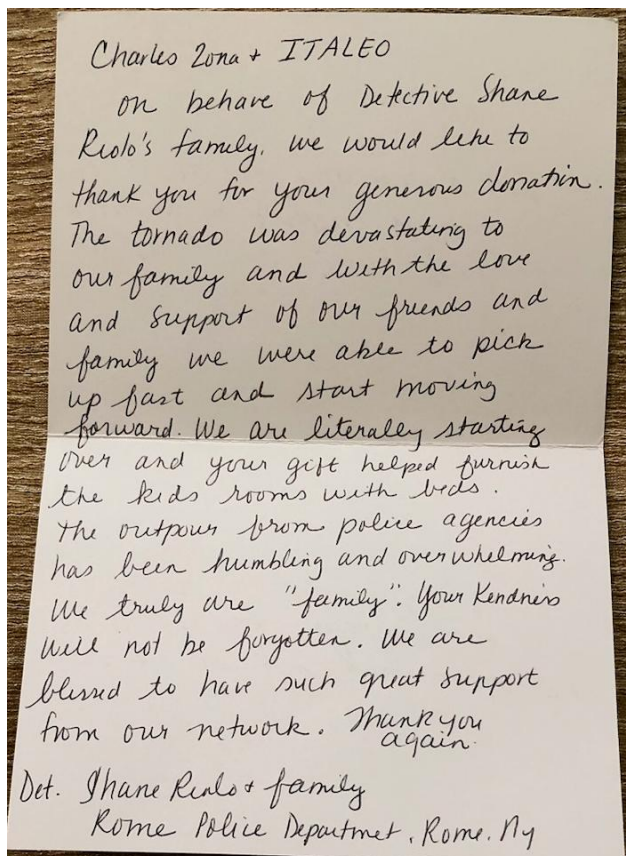 Charles Zona + ITALEO
on behave of Detective Shane
Riolo's family, we would like to
thank you for your generous donation.
The tornado was devastating to
our family and with the love
and support of our friends and
family we were able to pick
up fast and start moving
forward. We are literally starting
over and your gift helped furnish
the kids rooms with beds.
The outpour from police agencies
has been humbling and overwhelming.
We truly are "family". Your Kindness
will not be forgotten. We are
blessed to have such great support
from our network. Thank you
again.
Det. Shane Riolo + family
Rome Police Departmet, Rome, Ny